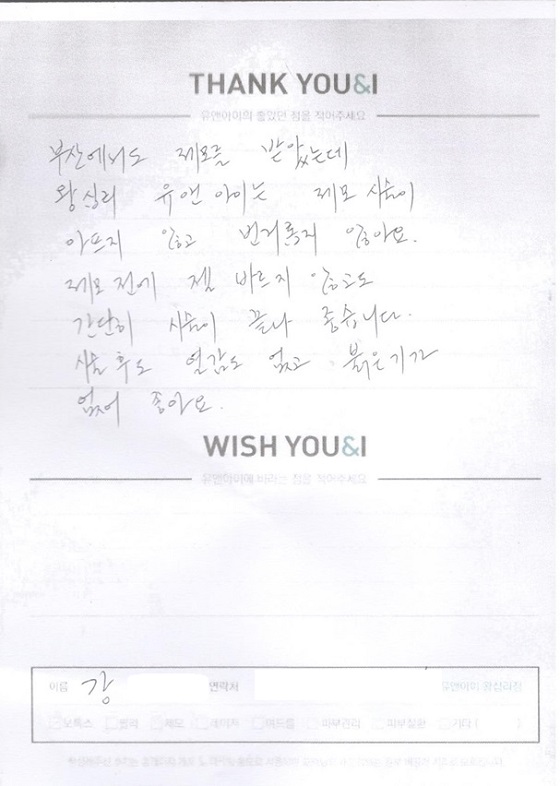 THANK YOU&I
유앤아이의 좋았던 점을 적어주세요
부산에서도 제모를 받았는데
왕십리 유앤아이는 제모 시술이
아프지 않고 번거롭지 않아요.
제모 전에 젤 바르지 않고도
간단히 시술이 끝나 좋습니다.
시술 후도 열감도 없고 붉은기가
없어 좋아요.
WISH YOU&I
유앤아이에 바라는 점을 적어주세요
이름 강 연락처 유앤아이 왕십리점
보톡스 필러 제모 레이저 여드름 피부관리 피부질환 기타 (